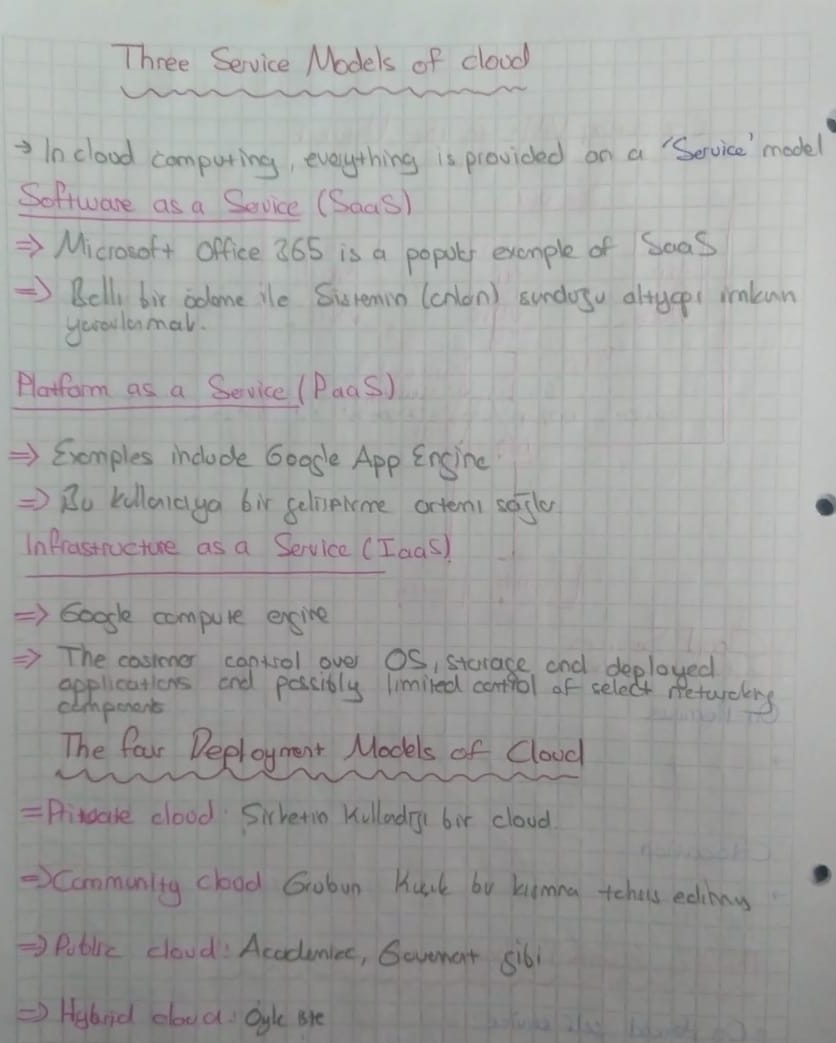 Three Service Models of cloud
→ In cloud computing, everything is provided on a 'Service' model
Software as a Service (SaaS)
⇒ Microsoft Office 365 is a popular example of SaaS
⇒ Belli bir ödeme ile Sistemin sunduğu altyapı imkanı
yararlanmak.
Platform as a Service (PaaS)
⇒ Examples include Google App Engine
⇒ Bu kullanıcıya bir geliştirme ortamı sağlar
Infrastructure as a Service (IaaS)
⇒ Google compute engine
⇒ The costomer control over OS, storage and deployed
applications and possibly limited control of select networking
components
The four Deployment Models of Cloud
⇒ Private cloud: Şirketin Kullandığı bir cloud.
⇒ Community cloud Grubun bir kısmına tahsis
⇒ Public cloud: Academic, Goverment gibi
⇒ Hybrid cloud: Öyle işte